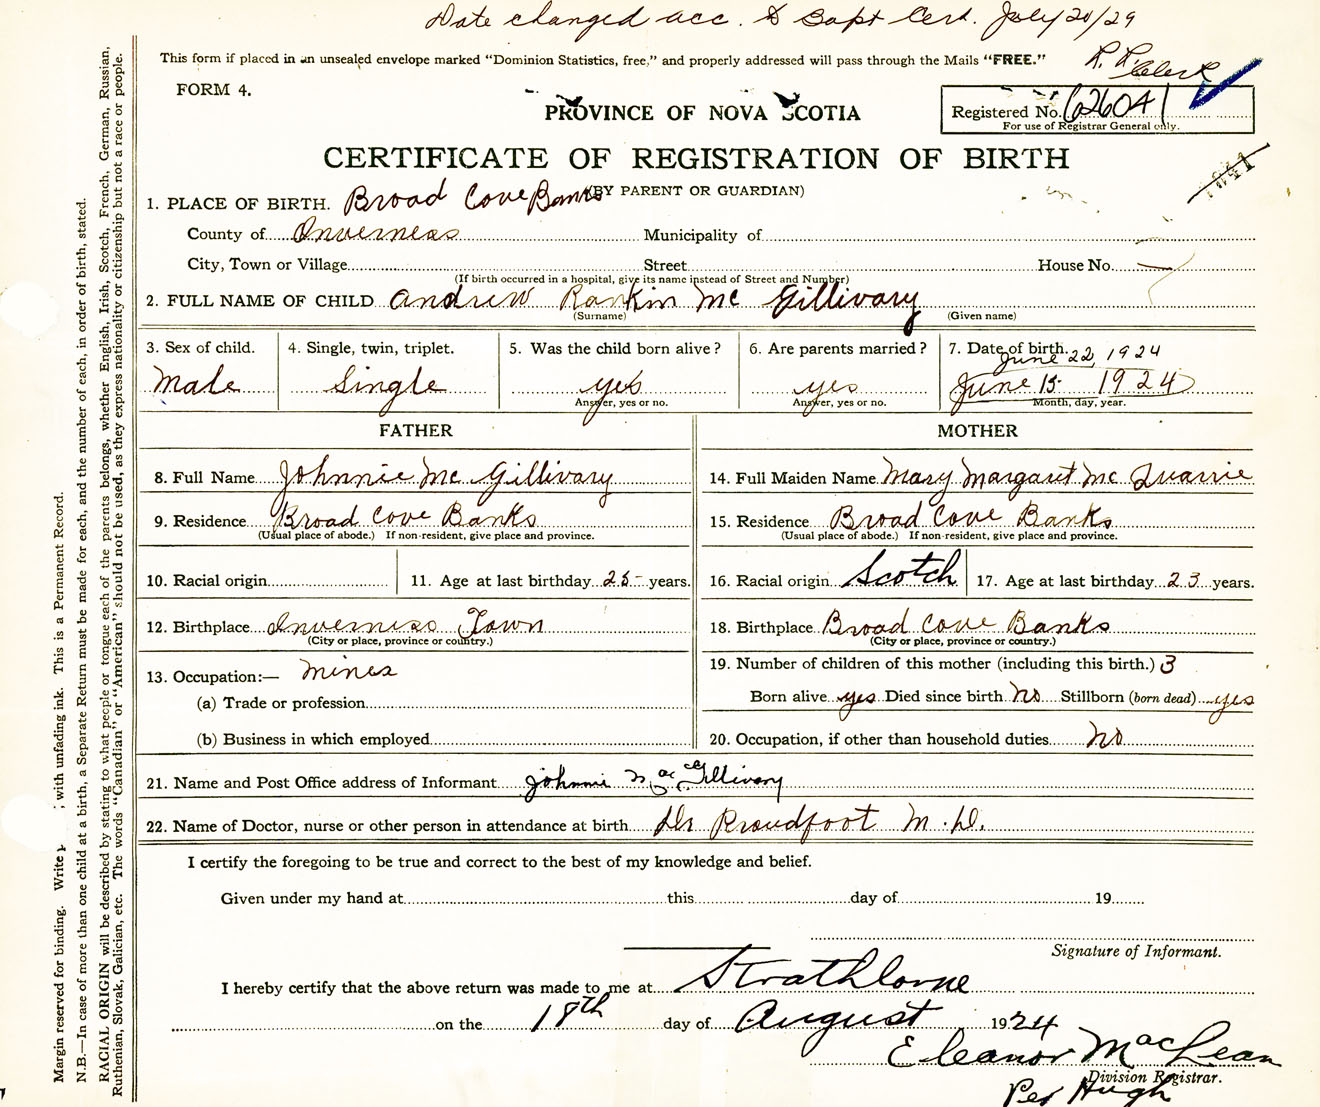 Date changed acc. to Bapt Cert. July 20/29
This form if placed in an unsealed envelope marked "Dominion Statistics, free," and properly addressed will pass through the Mails "FREE."
Clerk
FORM 4.
PROVINCE OF NOVA SCOTIA
Registered No. 626041
For use of Registrar General only.
CERTIFICATE OF REGISTRATION OF BIRTH
(BY PARENT OR GUARDIAN)
1. PLACE OF BIRTH. Broad Cove Banks
County of Inverness Municipality of
City, Town or Village Street House No.
(If birth occurred in a hospital, give its name instead of Street and Number)
2. FULL NAME OF CHILD Andrew Rankin Mc Gillivary
(Surname) (Given name)
3. Sex of child. 4. Single, twin, triplet. 5. Was the child born alive? 6. Are parents married? 7. Date of birth.
June 22, 1924
Male Single yes yes June 15 1924
Answer, yes or no. Answer, yes or no. Month, day, year.
FATHER MOTHER
8. Full Name Johnnie Mc Gillivary 14. Full Maiden Name Mary Margaret Mc Quarrie
9. Residence Broad Cove Banks 15. Residence Broad Cove Banks
(Usual place of abode.) If non-resident, give place and province. (Usual place of abode.) If non-resident, give place and province.
10. Racial origin 11. Age at last birthday 25 years. 16. Racial origin Scotch 17. Age at last birthday 23 years.
12. Birthplace Inverness Town 18. Birthplace Broad Cove Banks
(City or place, province or country.) (City or place, province or country.)
13. Occupation:— 19. Number of children of this mother (including this birth.) 3
(a) Trade or profession Born alive yes Died since birth No Stillborn (born dead) yes
(b) Business in which employed 20. Occupation, if other than household duties No
21. Name and Post Office address of Informant Johnnie MacGillivary
22. Name of Doctor, nurse or other person in attendance at birth Dr Proudfoot M.D.
I certify the foregoing to be true and correct to the best of my knowledge and belief.
Given under my hand at this day of 19
Signature of Informant.
I hereby certify that the above return was made to me at Strathlorne
on the 18th day of August 1924
Eleanor MacLean
Division Registrar.
Per Hugh
Margin reserved for binding. Write with unfading ink. This is a Permanent Record.
N.B.—In case of more than one child at a birth, a Separate Return must be made for each, and the number of each, in order of birth, stated.
RACIAL ORIGIN will be described by stating to what people or tongue each of the parents belongs, whether English, Irish, Scotch, French, German, Russian,
Ruthenian, Slovak, Galician, etc. The words "Canadian" or "American" should not be used, as they express nationality or citizenship but not a race or people.